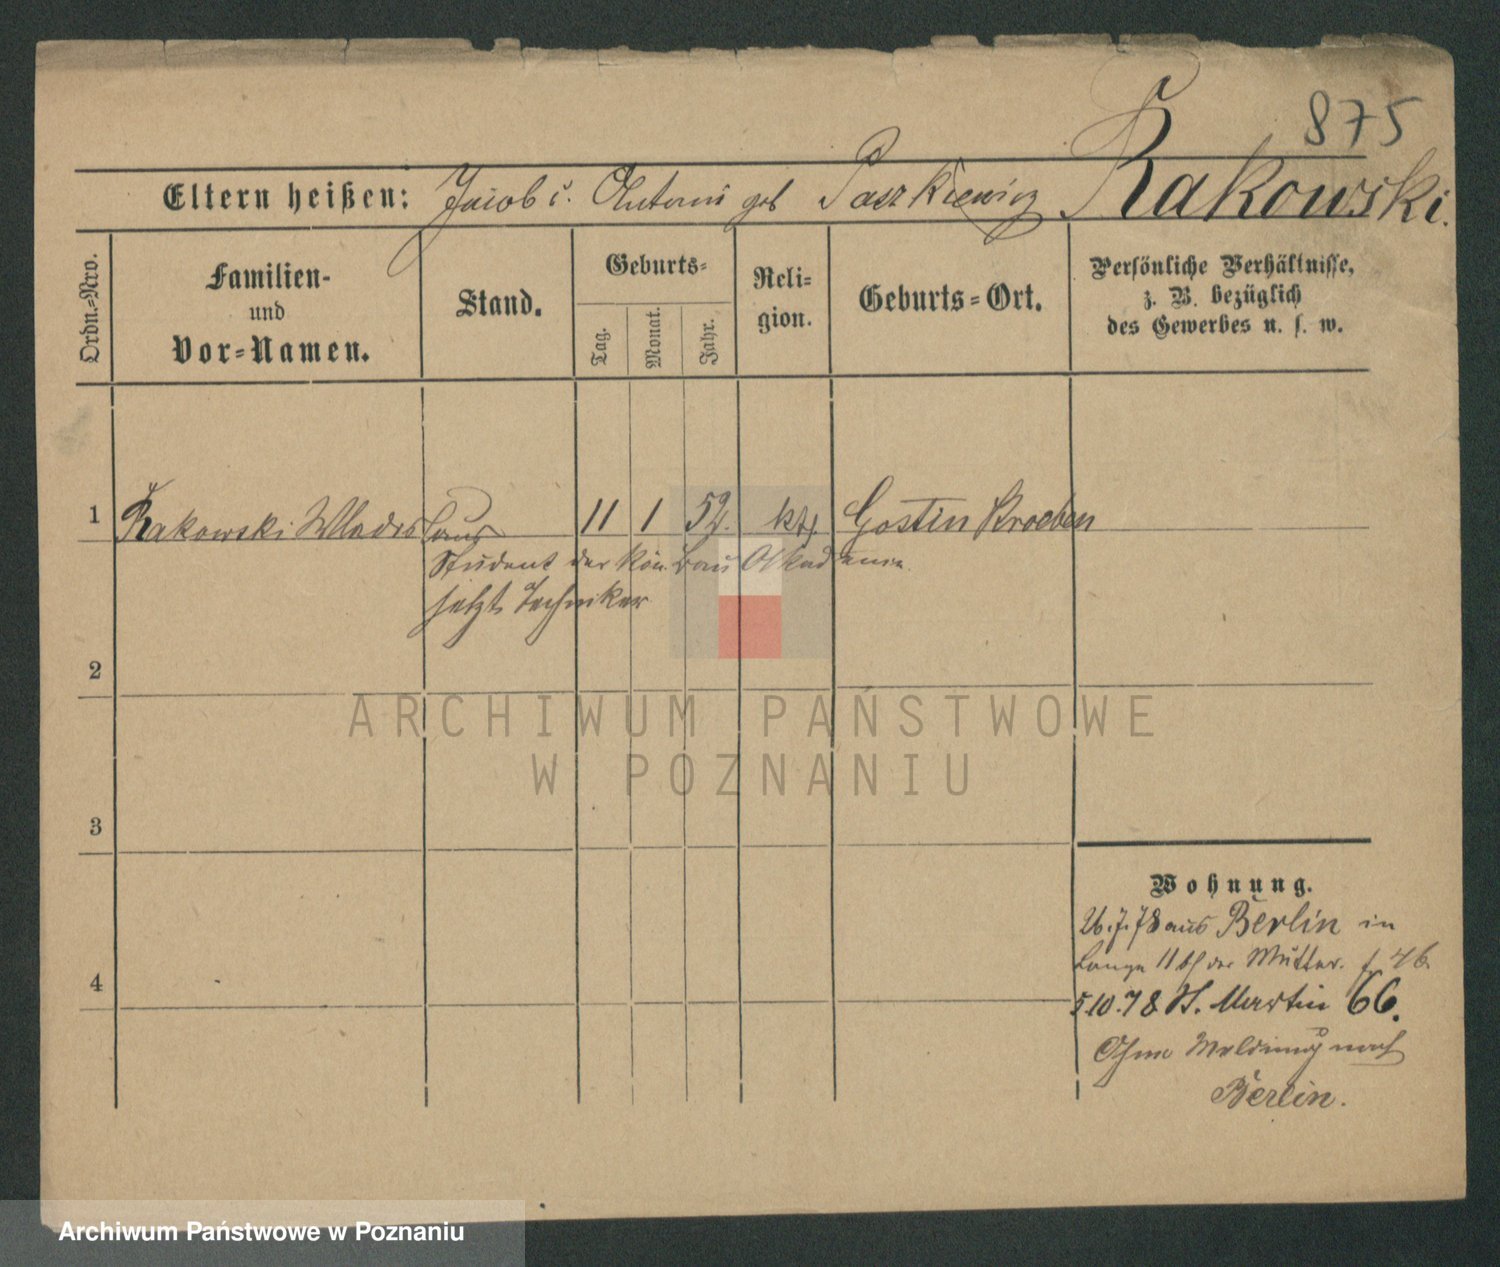 875
Rakowski.
Eltern heißen: Jacob u. Antonie geb Paszkiewicz
Ordn.=Nro.
Familien-
und
Vor=Namen.
Stand.
Geburts=
Tag.
Monat.
Jahr.
Reli=
gion.
Geburts=Ort.
Persönliche Verhältnisse,
z. B. bezüglich
des Gewerbes u. s. w.
1 Rakowski Wladislaus 11 1 52. kth. Gostin Kroeben
Student der Kön. Bau Akademie
jetzt Techniker
2
3
4
Wohnung.
26.7.78 aus Berlin in
Lange 11 bei der Mutter.
5.10.78 St. Martin 66.
Ohne Meldung nach
Berlin.
ARCHIWUM PAŃSTWOWE
W POZNANIU
Archiwum Państwowe w Poznaniu